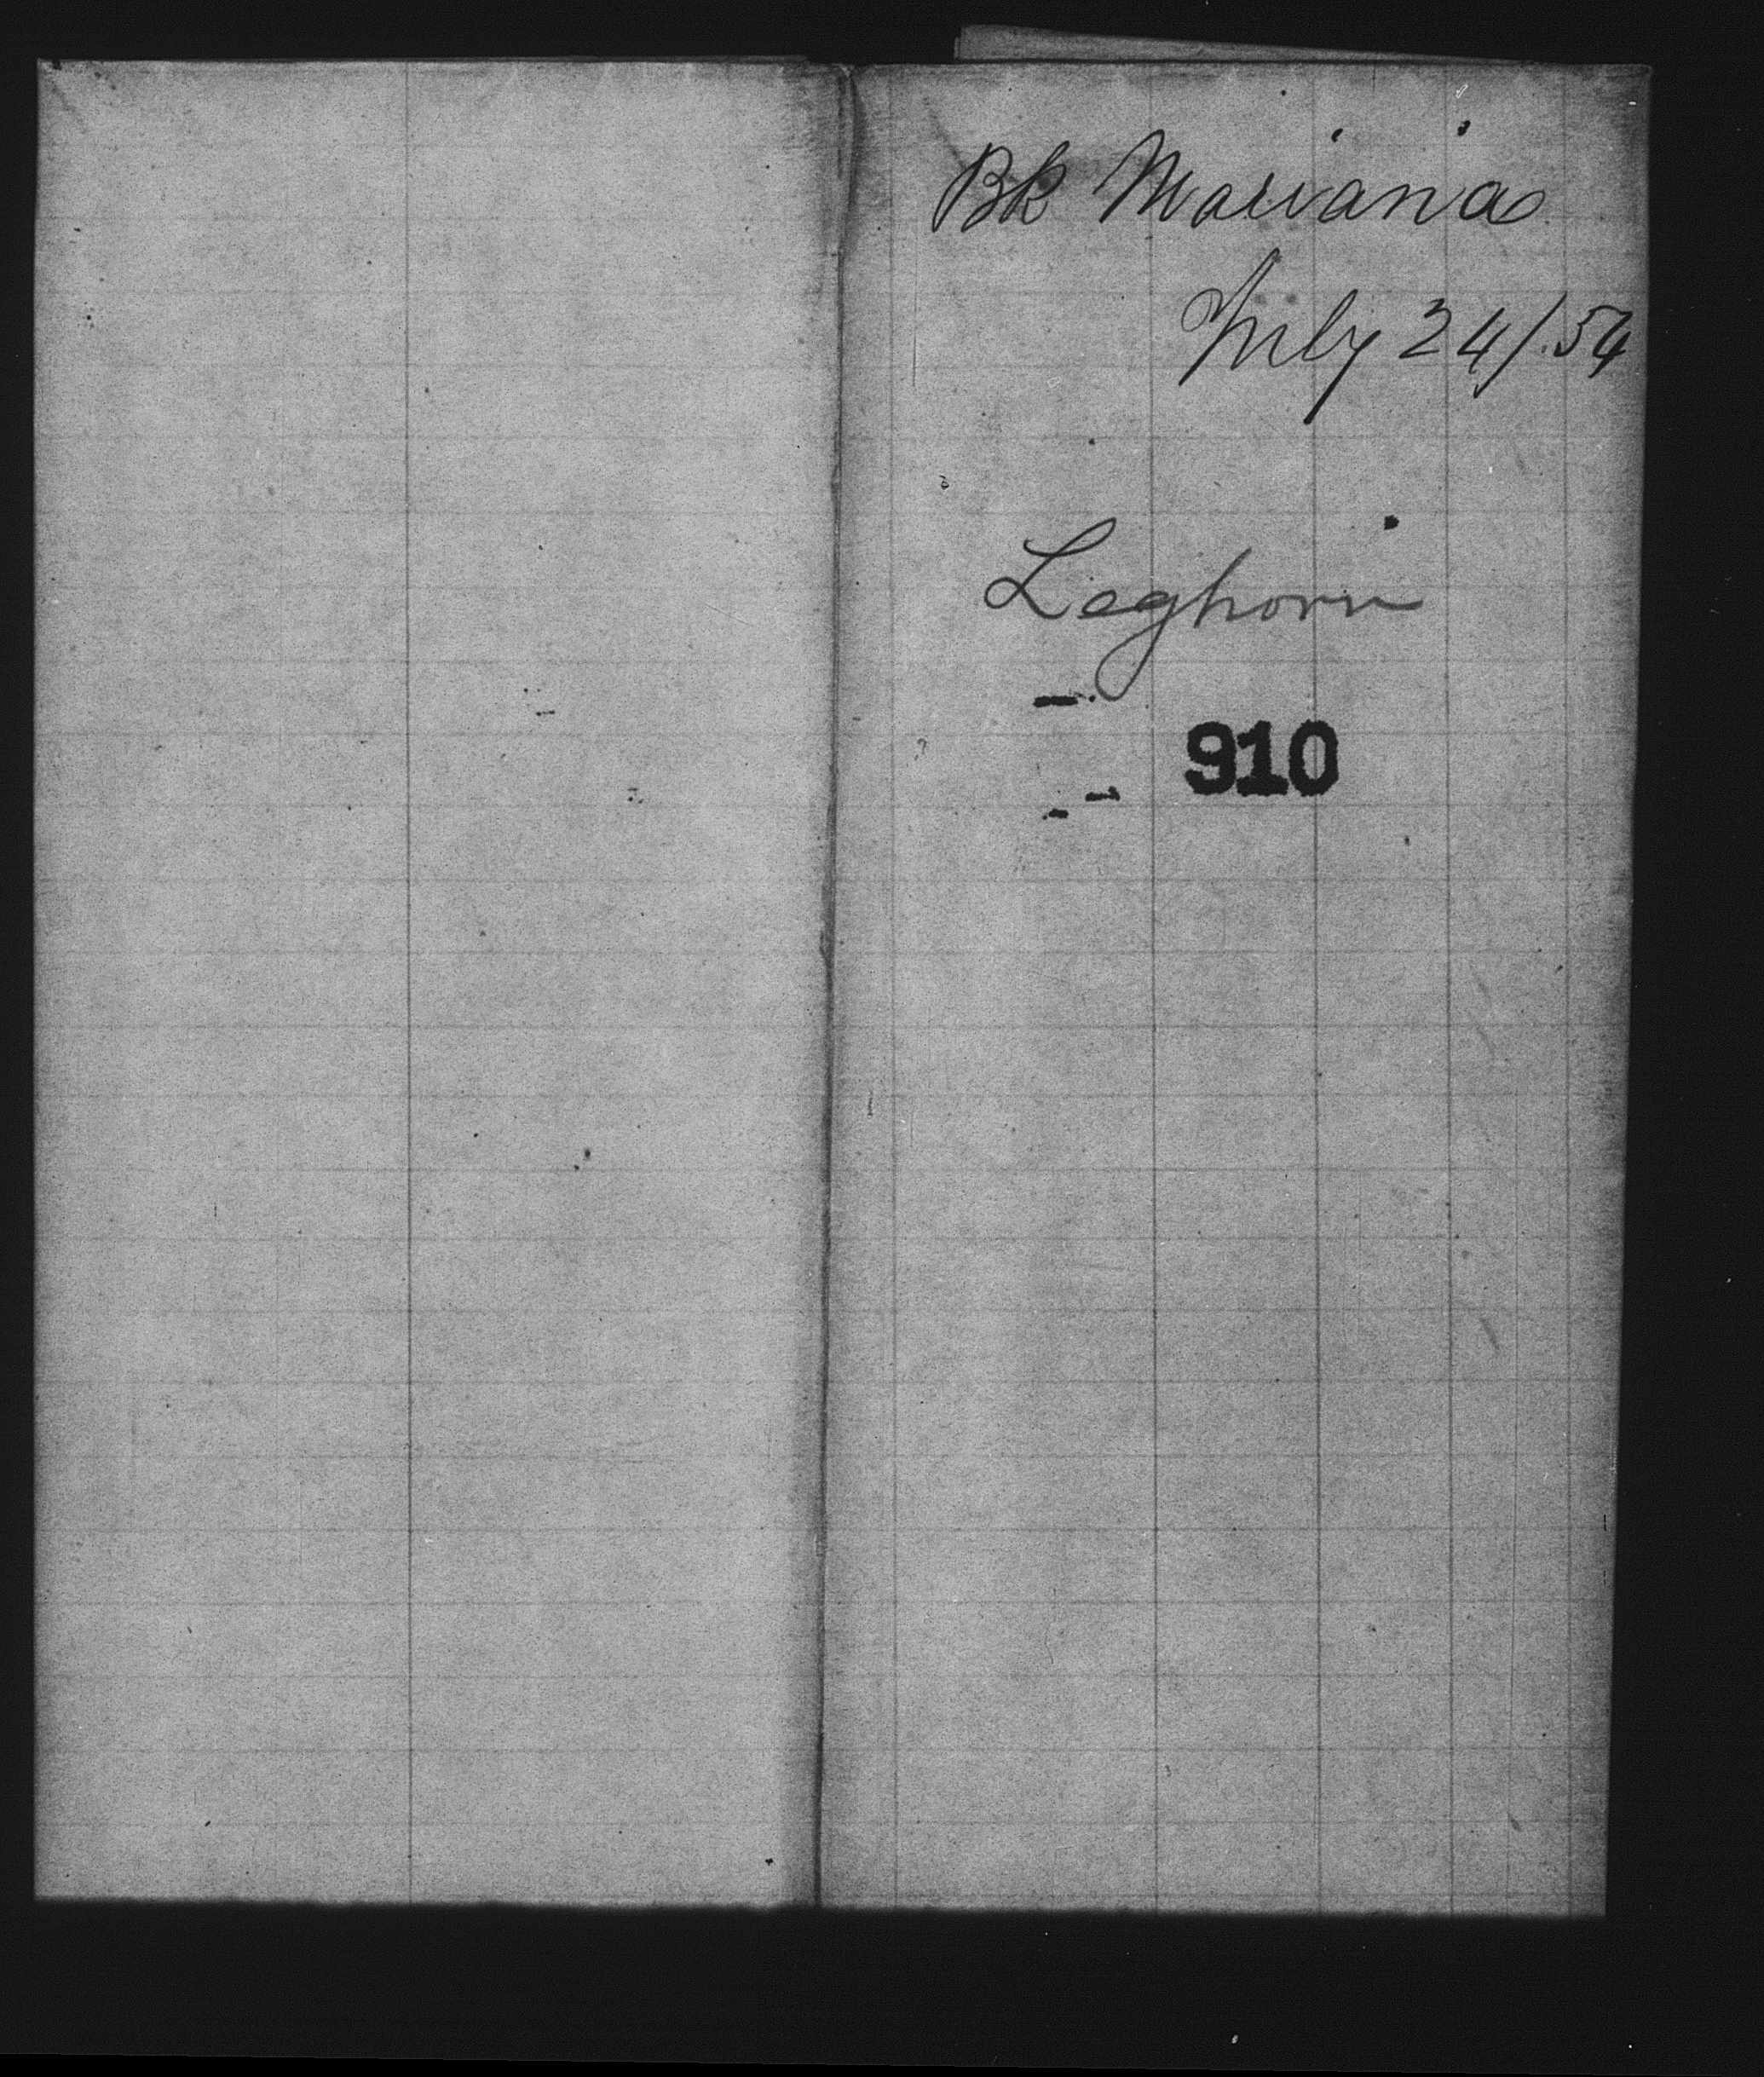 Bk Mariania
July 24/.54
Leghorn
910